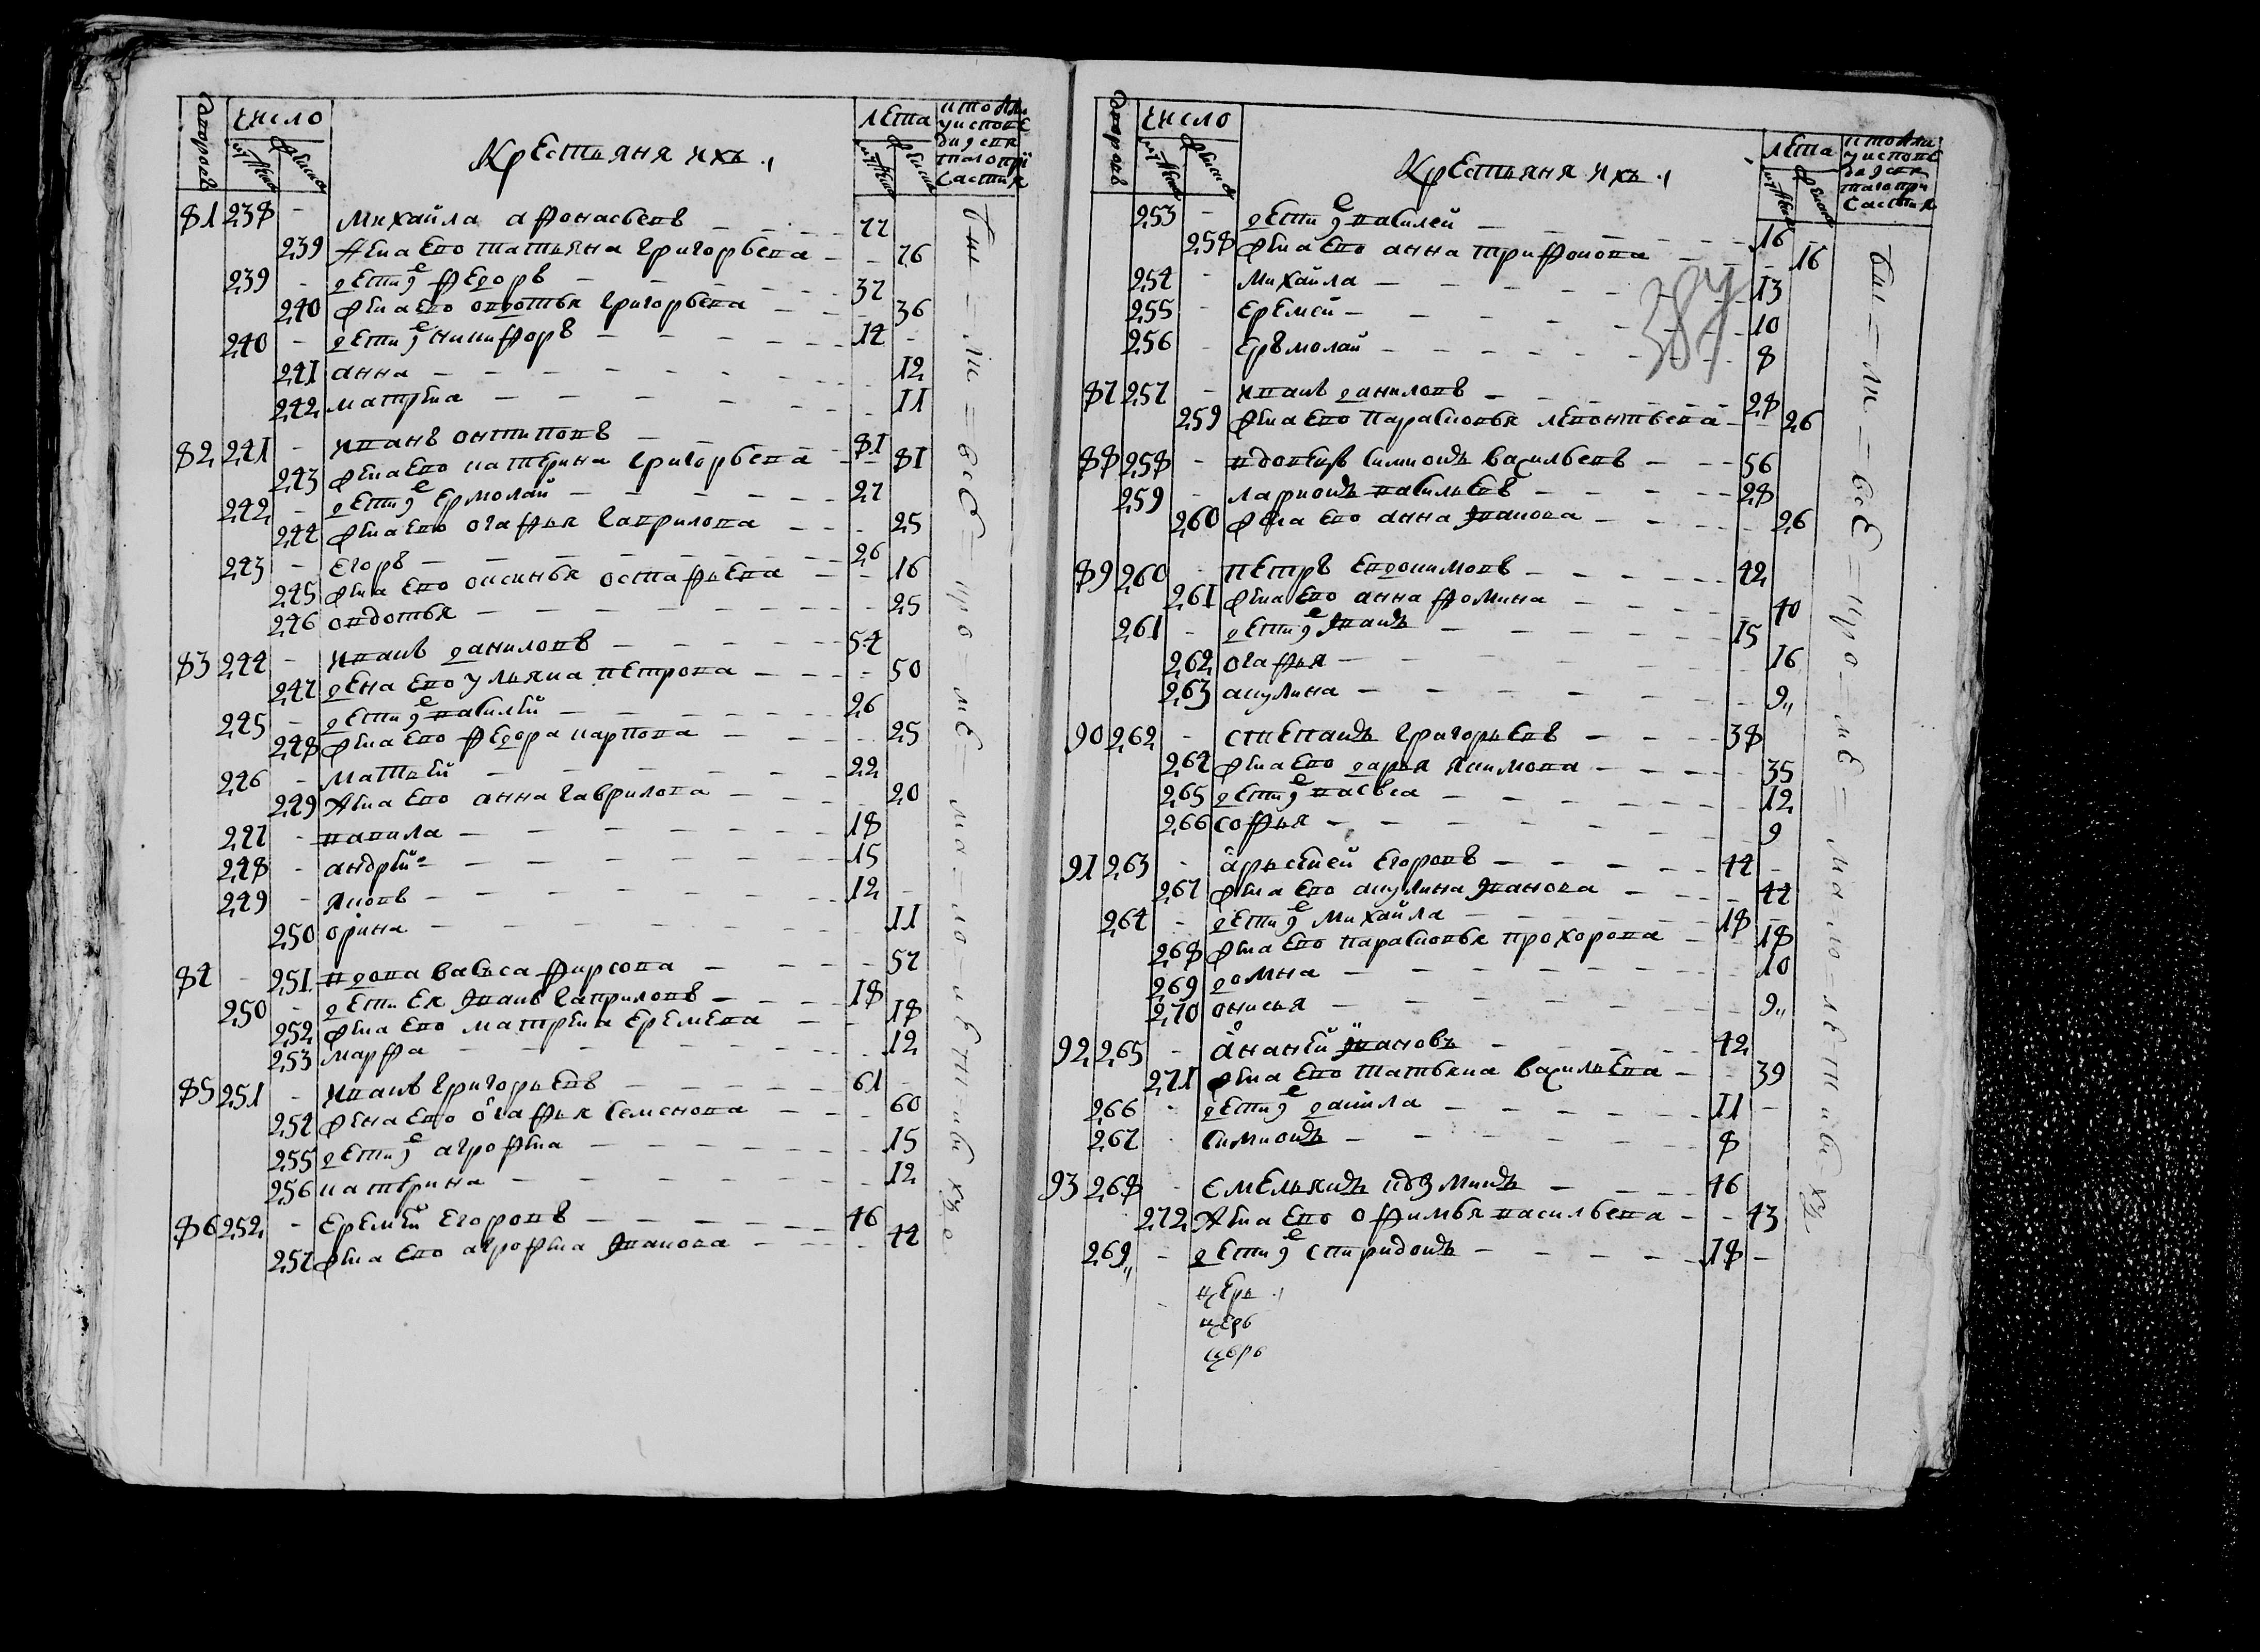 дворовъ
число
мужска
женска
Крестьяня ихъ
лета
мужска
женска
81 238 - Михайла афонасьевъ - - - 77
239 жена ево татьяна григорьева - - 76
239 - дети ѣ федоръ - - - 37
240 жена ево овдотья григорьева - - - 36
240 - дети ѣ никифоръ - - - 14 -
241 анна - - - 12
242 матрена - - - 11
82 241 - иванъ онтиповъ - - - 81
243 жена ево катерина григорьева - - 81
242 - дети ѣ ермолай - - - 27
244 жена ево огафья гаврилова - - - 25
243 - егоръ - - - 26
245 жена ево оксинья остафьева - - 16
246 овдотья - - - 25
83 244 - иванъ даниловъ - - - 54
247 жена ево ульяна петрова - - - 50
245 - дети ѣ василей - - - 26
248 жена ево федора карпова - - - 25
246 - матвей - - - 22
249 жена ево анна гаврилова - - - 20
247 - вавила - - - 18
248 - андрей - - - 15
249 - яковъ - - - 12 -
250 орина - - - 11
84 - 251 вдова васса фирсова - - - 57
250 - дети ея иванъ гавриловъ - - - 18
252 жена ево матрена еремеева - - 18
253 марфа - - - 12
85 251 - иванъ григорьевъ - - - 61 -
254 жена ево огафья семенова - - - 60
255 дети ѣ агрофена - - - 15
256 катерина - - - 12
86 252 - еремей егоровъ - - - 46
257 жена ево агрофена иванова - - - 44
дворовъ
число
мужска
женска
Крестьяня ихъ
лета
мужска
женска
253 - дети ѣ василей - - - 16 -
258 жена ево анна трифонова - - - 16
254 - михайла - - - 13
255 - еремей - - - 10
256 - ермолай - - - 8
387
87 257 - иванъ даниловъ - - - 28
259 жена ево парасковья леонтьева - - 26
88 258 - вдовецъ симионъ васильевъ - - - 56
259 - ларионъ васильевъ - - - 28
260 жена ево анна иванова - - - 26
89 260 - петръ евдокимовъ - - - 42
261 жена ево анна фомина - - - 40
261 - дети ѣ иванъ - - - 15
262 огафья - - - 16
263 акулина - - - 9
90 262 - степанъ григорьевъ - - - 38
264 жена ево дарья якимова - - - 35
265 дети ѣ васса - - - 12
266 софья - - - 9
91 263 - арьсеней егоровъ - - - 44 -
267 жена ево акулина иванова - - - 44
264 - дети ѣ михайла - - - 18 -
268 жена ево парасковья прохорова - - 18
269 домна - - - 10
270 онисья - - - 9
92 265 - ананей ивановъ - - - 42
271 жена ево татьяна васильева - - 39
266 - дети ѣ данила - - - 11 -
267 - симионъ - - - 8
93 268 - емельянъ козминъ - - - 46
272 жена ево офимья васильева - - 43
269 - дети ѣ спиридонъ - - - 18 -
церь
церь
цьрь